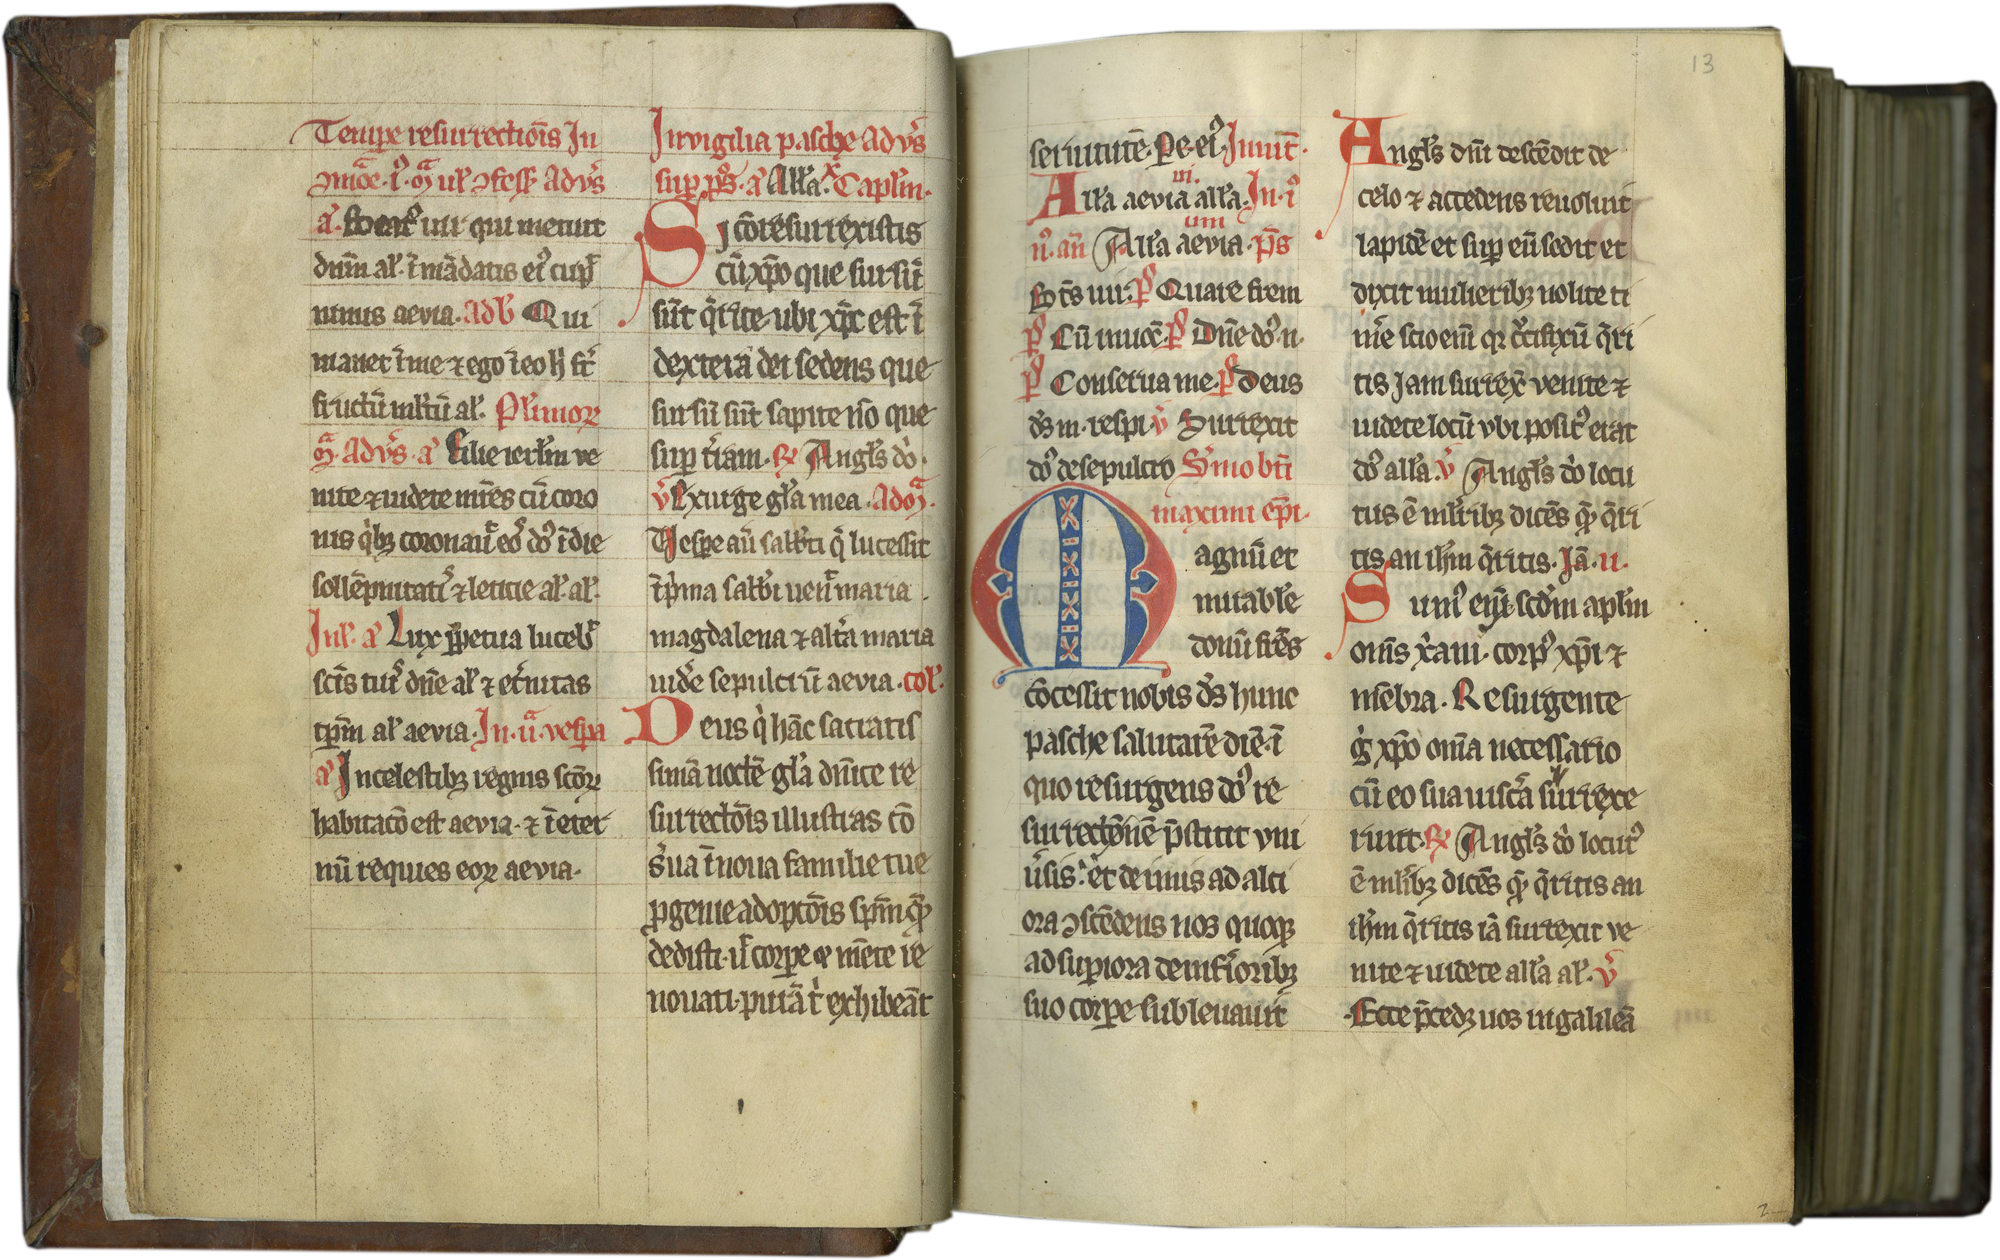 Tempe resurrectiōis In
ad vs̄
a. uir qui metuit
dnm̄ al. ī mādatis eiꝰ cup̄
nimis aevia. Ad b Qui
manet ī me ⁊ ego ī eo h̄ fert
fructū ml̄tū al. Pl̄imoꝝ
m̄. Ad vs̄. a Filie ierl̄m ve
nite ⁊ uidete mr̄es cū coro
nis qͥbꝫ coronauͭ eos dōs ī die
sollēpnitatis ⁊ leticie al. al.
Inl. a Lux ꝑpetua luceb
scīs tuis dn̄e al. ⁊ etͥnitas
tpm̄ al. aevia. In .ii. vespa
a In celestibꝫ regnis scōꝝ
habitacō est aevia. ⁊ ī eter
nū requies eoꝝ aevia.
In vigilia pasche Ad vs̄
sup ps̄. a All'a. Capl̄m.
Si cōresurrexistis
cū xp̄o que sursū
sūt q̄rite ubi xp̄c est ī
dextera dei sedens que
sursū sūt sapite nō que
sup t̄ram. ℟ Angls̄ dō.
v̄ Exurge gl̄a mea. Ad m̄.
Vespe aū sabb̄ti q̄ lucessit
ī pͥma sabb̄i ueͭn maria
magdalena ⁊ altͣa maria
uidͤe sepulcrū aevia. col'.
Deus q̇ hāc sacratis
simā noctē gl̄a dn̄ice re
surrectōis illustras cō
s̄ua ī noua familie tue
ꝓgenie adoptōis spm̄ qꝫ
dedisti. ut corpe ⁊ mēte re
nouati. purā t̄ exhibeāt
13
seruitutē. Pe. eiꝰ. Inuit.
All'a aevia all'a. In .i.
n̄. an̄ All'a aevia. ps̄
Bt̄s uir. ps̄ Quare frem
ps̄ Cū inuoc̄. ps̄ Dn̄e dō. n.
ps̄ Conserua me. ps̄ Deus
ds̄ m. respi v̄ Surrexit
dōs de sepulcro S'mo bt̄i
maximi ep̄i.
Magnū et
mirabile
donū frēs
cōcessit nobis ds̄ hunc
pasche salutarē diē. ī
quo resurgens dōs re
surrectōnē p̄stitit vni
ūsis. et de imis ad alti
ora ꝯscēdens nos quoqꝫ
ad supiora de inferioribꝫ
suo corpe subleuauit
Angls̄ dn̄i descēdit de
celo ⁊ accedens reuoluit
lapidē et sup eū sedit et
dixit mulieribꝫ nolite ti
mͤe scio enī qꝛ crucifixū q̄ri
tis Jam surrex̄ venite ⁊
uidete locū vbi positꝰ erat
dōs all'a. v̄ Angls̄ dō locu
tus ē ml̄ribꝫ dicēs quē q̄ri
tis an ihm̄ q̄ritis. Jā. ii.
Sumꝰ enī scd̄m apl̄m
oms̄ x̄ani. corpꝰ xp̄i ⁊
mēbra. Resurgente
gͦ xp̄o omīa necessario
cū eo sua uiscͣa surrexe
runt. ℟ Angls̄ dō locutꝰ
ē ml̄ribꝫ dicēs quē q̄ritis an
ihm̄ q̄ritis iā surrexit ve
nite ⁊ uidete all'a al. v̄
Ecce p̄cedꝫ uos in galileā
2